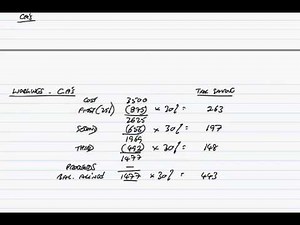 CA's
WORKINGS - CA's TAX SAVING
COST 3500
FIRST (25%) (875) × 30% = 263
2625
SECOND (656) × 30% = 197
1969
THIRD (492) × 30% = 148
1477
PROCEEDS —
BAL. 1477 × 30% = 443